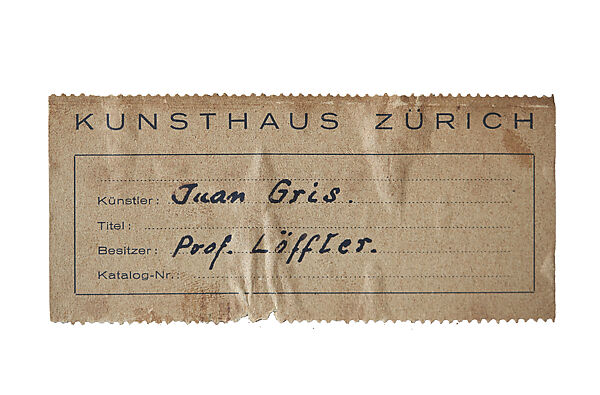 KUNSTHAUS ZÜRICH
Künstler: Juan Gris.
Titel:
Besitzer: Prof. Löffler.
Katalog-Nr.: